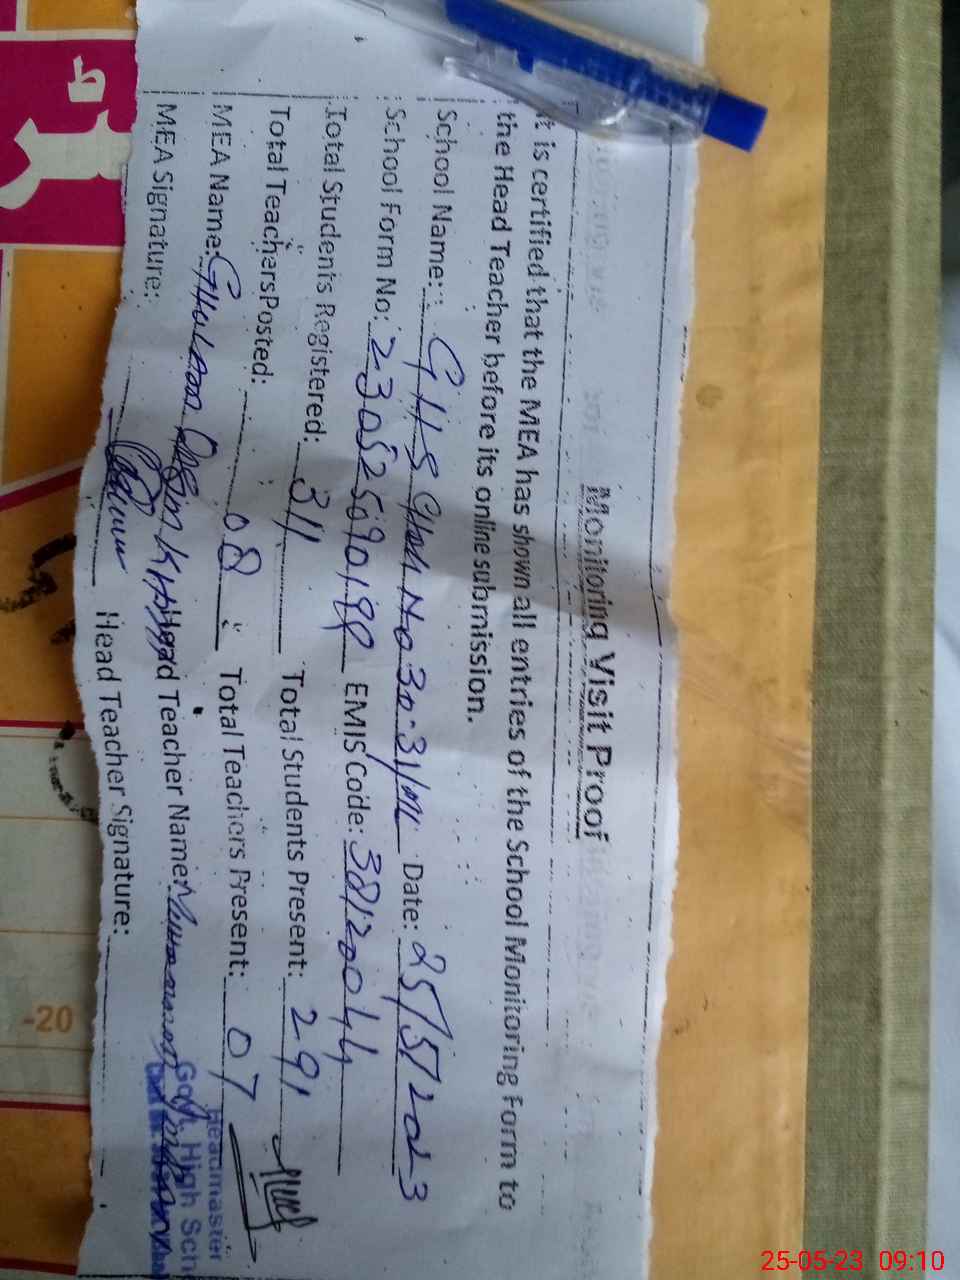 Monitoring Visit Proof
It is certified that the MEA has shown all entries of the School Monitoring Form to
the Head Teacher before its online submission.
School Name: GHS Chak No 30.31/ML Date: 25/5/2023
School Form No: 230525690198 EMIS Code: 38120044
Total Students Registered: 311 Total Students Present: 291
Total Teachers Posted: 08 Total Teachers Present: 07
MEA Name: Ghulam Khan Head Teacher Name: Muhammad
MEA Signature: Head Teacher Signature:
Headmaster
Govt. High Sch
-20
25-05-23 09:10